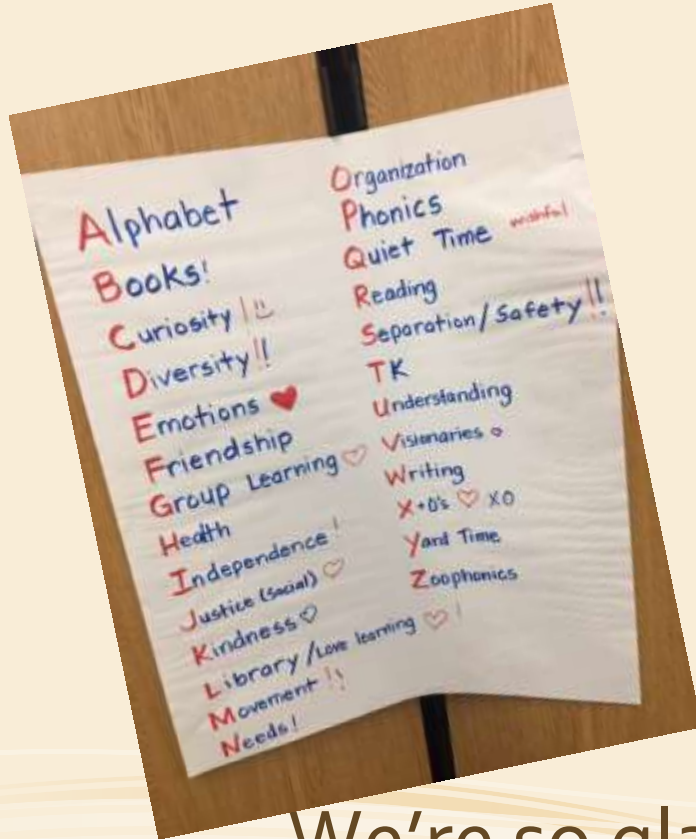 Alphabet
Books!
Curiosity!
Diversity!!
Emotions
Friendship
Group Learning
Health
Independence!
Justice (Social)
Kindness
Library/Love learning !
Movement !!
Needs!
Organization
Phonics
Quiet Time wishful
Reading
Separation/Safety!!
TK
Understanding
Visionaries
Writing
X+O's XO
Yard Time
Zoophonics
We're so gla